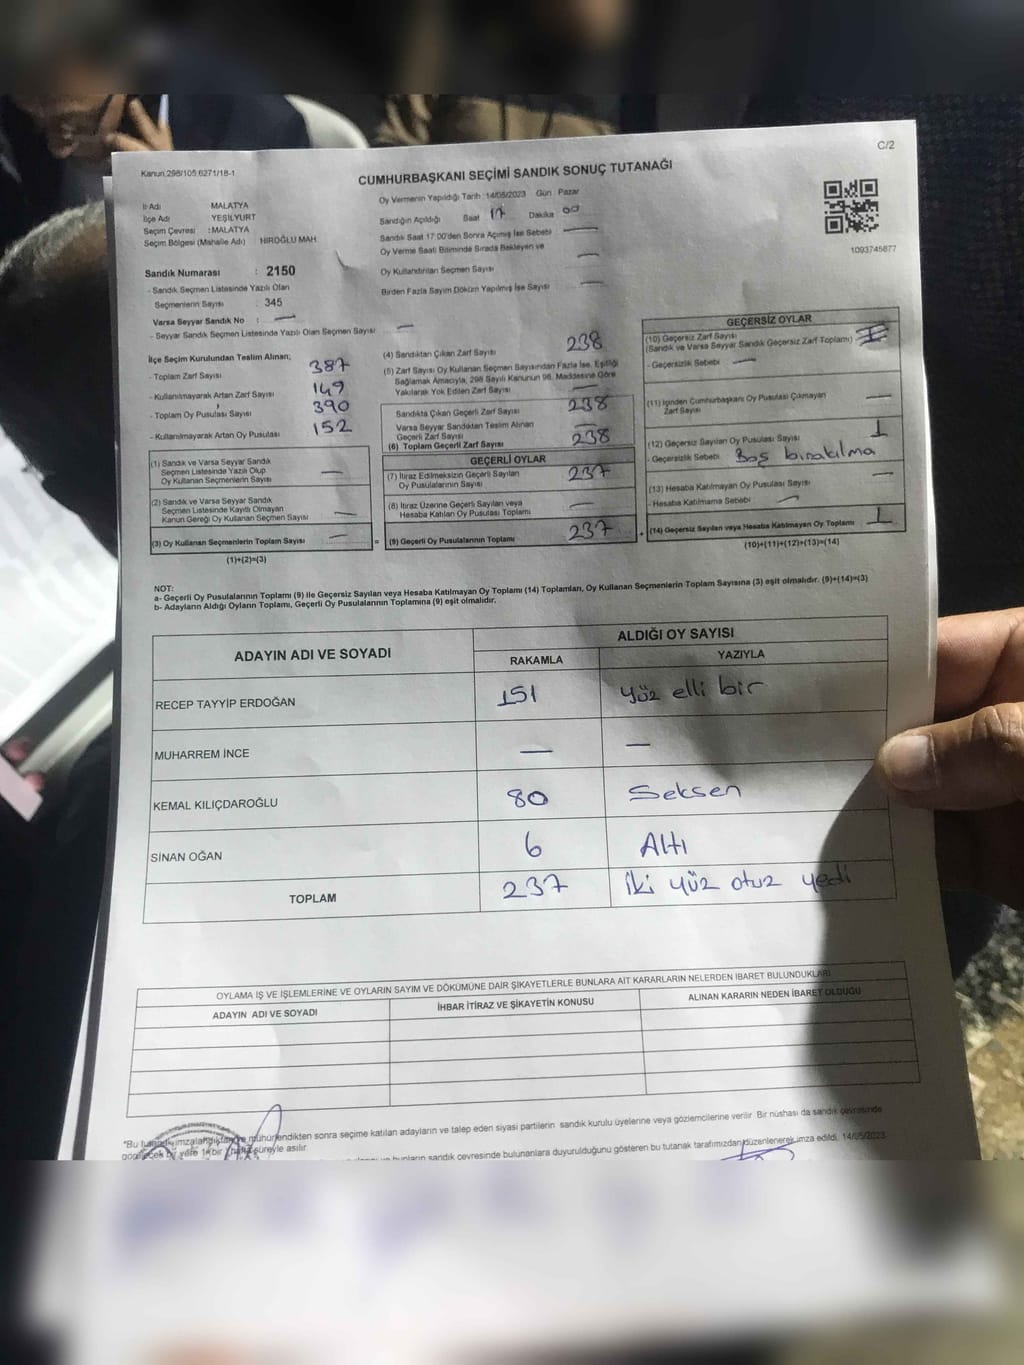 C/2
Kanun:298/105,6271/18-1
CUMHURBAŞKANI SEÇİMİ SANDIK SONUÇ TUTANAĞI
İl Adı MALATYA
İlçe Adı YEŞİLYURT
Seçim Çevresi : MALATYA
Seçim Bölgesi (Mahalle Adı) HIROĞLU MAH.
Oy Vermenin Yapıldığı Tarih : 14/05/2023 Gün : Pazar
Sandığın Açıldığı Saat 17 Dakika 00
Sandık Saat 17:00'den Sonra Açılmış İse Sebebi : —
Oy Verme Saati Bitiminde Sırada Bekleyen ve
Oy Kullandırılan Seçmen Sayısı —
Birden Fazla Sayım Döküm Yapılmış İse Sayısı —
1093745877
Sandık Numarası : 2150
- Sandık Seçmen Listesinde Yazılı Olan
Seçmenlerin Sayısı : 345
Varsa Seyyar Sandık No : —
- Seyyar Sandık Seçmen Listesinde Yazılı Olan Seçmen Sayısı : —
İlçe Seçim Kurulundan Teslim Alınan;
- Toplam Zarf Sayısı 387
- Kullanılmayarak Artan Zarf Sayısı 149
- Toplam Oy Pusulası Sayısı 390
- Kullanılmayarak Artan Oy Pusulası 152
(1) Sandık ve Varsa Seyyar Sandık
Seçmen Listesinde Yazılı Olup
Oy Kullanan Seçmenlerin Sayısı —
(2) Sandık ve Varsa Seyyar Sandık
Seçmen Listesinde Kayıtlı Olmayan
Kanun Gereği Oy Kullanan Seçmen Sayısı —
(3) Oy Kullanan Seçmenlerin Toplam Sayısı —
(1)+(2)=(3)
(4) Sandıktan Çıkan Zarf Sayısı 238
(5) Zarf Sayısı Oy Kullanan Seçmen Sayısından Fazla İse, Eşitliği
Sağlamak Amacıyla, 298 Sayılı Kanunun 98. Maddesine Göre
Yakılarak Yok Edilen Zarf Sayısı —
Sandıkta Çıkan Geçerli Zarf Sayısı 238
Varsa Seyyar Sandıktan Teslim Alınan
Geçerli Zarf Sayısı —
(6) Toplam Geçerli Zarf Sayısı 238
GEÇERLİ OYLAR
(7) İtiraz Edilmeksizin Geçerli Sayılan
Oy Pusulalarının Sayısı 237
(8) İtiraz Üzerine Geçerli Sayılan veya
Hesaba Katılan Oy Pusulası Toplamı —
= (9) Geçerli Oy Pusulalarının Toplamı 237
GEÇERSİZ OYLAR
(10) Geçersiz Zarf Sayısı
(Sandık ve Varsa Seyyar Sandık Geçersiz Zarf Toplamı)
- Geçersizlik Sebebi —
(11) İçinden Cumhurbaşkanı Oy Pusulası Çıkmayan
Zarf Sayısı —
(12) Geçersiz Sayılan Oy Pusulası Sayısı 1
- Geçersizlik Sebebi Boş bırakılma
(13) Hesaba Katılmayan Oy Pusulası Sayısı —
- Hesaba Katılmama Sebebi —
+ (14) Geçersiz Sayılan veya Hesaba Katılmayan Oy Toplamı 1
(10)+(11)+(12)+(13)=(14)
NOT:
a- Geçerli Oy Pusulalarının Toplamı (9) ile Geçersiz Sayılan veya Hesaba Katılmayan Oy Toplamı (14) Toplamları, Oy Kullanan Seçmenlerin Toplam Sayısına (3) eşit olmalıdır. (9)+(14)=(3)
b- Adayların Aldığı Oyların Toplamı, Geçerli Oy Pusulalarının Toplamına (9) eşit olmalıdır.
ADAYIN ADI VE SOYADI ALDIĞI OY SAYISI
RAKAMLA YAZIYLA
RECEP TAYYİP ERDOĞAN 151 yüz elli bir
MUHARREM İNCE — —
KEMAL KILIÇDAROĞLU 80 Seksen
SİNAN OĞAN 6 Altı
TOPLAM 237 İki yüz otuz yedi
OYLAMA İŞ VE İŞLEMLERİNE VE OYLARIN SAYIM VE DÖKÜMÜNE DAİR ŞİKAYETLERLE BUNLARA AİT KARARLARIN NELERDEN İBARET BULUNDUKLARI
ADAYIN ADI VE SOYADI İHBAR İTİRAZ VE ŞİKAYETİN KONUSU ALINAN KARARIN NEDEN İBARET OLDUĞU
*Bu mühürlendikten sonra seçime katılan adayların ve talep eden siyasi partilerin sandık kurulu üyelerine veya gözlemcilerine verilir. Bir nüshası da sandık çevresinde
yere 1 bir süreyle asılır.
bunların sandık çevresinde bulunanlara duyurulduğunu gösteren bu tutanak tarafımızdan düzenlenerek imza edildi. 14/05/2023